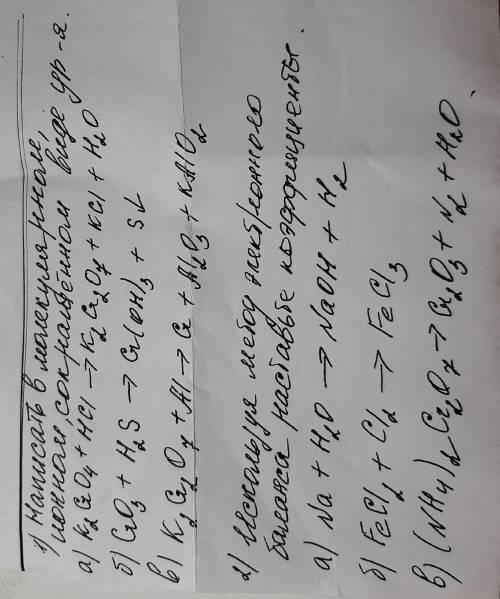 1) Написать в молекулярном,
ионном, сокращённом виде ур-я.
а) K₂CrO₄ + HCl → K₂Cr₂O₇ + KCl + H₂O
б) CrO₃ + H₂S → Cr(OH)₃ + S↓
в) K₂Cr₂O₇ + Al → Cr + Al₂O₃ + KAlO₂
2) Используя метод электронного
баланса расставьте коэффициенты.
а) Na + H₂O → NaOH + H₂
б) FeCl₂ + Cl₂ → FeCl₃
в) (NH₄)₂Cr₂O₇ → Cr₂O₃ + N₂ + H₂O.